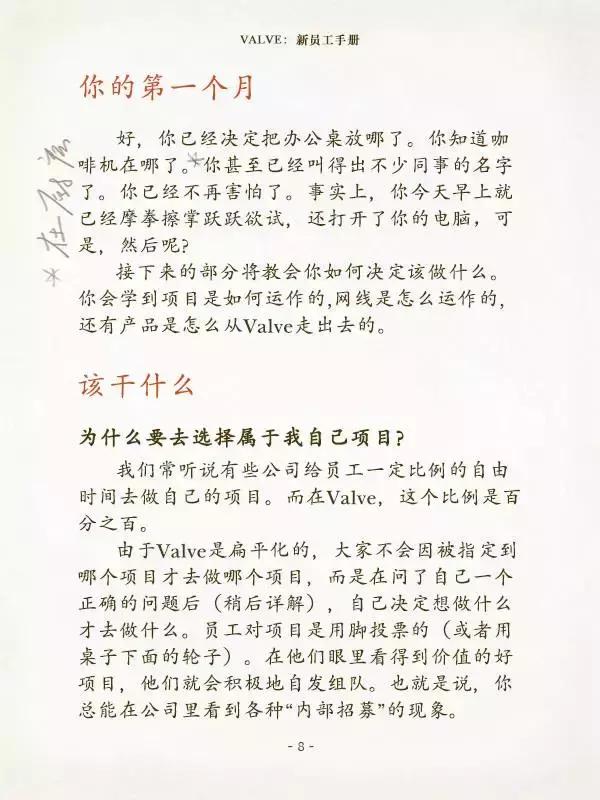 VALVE：新员工手册
你的第一个月
好，你已经决定把办公桌放哪了。你知道咖
啡机在哪了。*你甚至已经叫得出不少同事的名字
了。你已经不再害怕了。事实上，你今天早上就
已经摩拳擦掌跃跃欲试，还打开了你的电脑，可
是，然后呢？
接下来的部分将教会你如何决定该做什么。
你会学到项目是如何运作的,网线是怎么运作的，
还有产品是怎么从Valve走出去的。
该干什么
为什么要去选择属于我自己项目？
我们常听说有些公司给员工一定比例的自由
时间去做自己的项目。而在Valve，这个比例是百
分之百。
由于Valve是扁平化的，大家不会因被指定到
哪个项目才去做哪个项目，而是在问了自己一个
正确的问题后（稍后详解），自己决定想做什么
才去做什么。员工对项目是用脚投票的（或者用
桌子下面的轮子）。在他们眼里看得到价值的好
项目，他们就会积极地自发组队。也就是说，你
总能在公司里看到各种“内部招募”的现象。
- 8 -